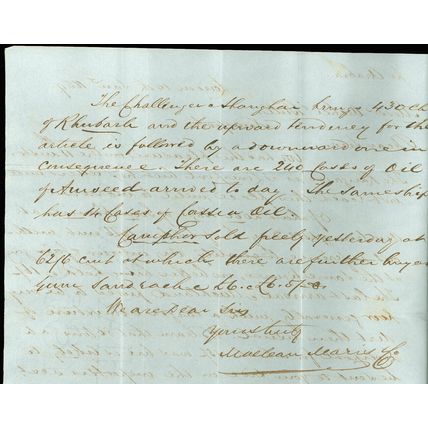 The Challenger a Shanghai brings 430 Ch
of Rhubarb and the upward tendency for the
article is followed by a downward one in
consequence. There are 240 Cases of Oil
of Aniseed arrived to day. The same ship
has 14 Cases of Cassia Oil.
Camphor sold freely yesterday at
62/6 cwt at which there are further buyers
Gum Sandrach
We are Dear Sirs
Yours truly
Maclean Maris & Co